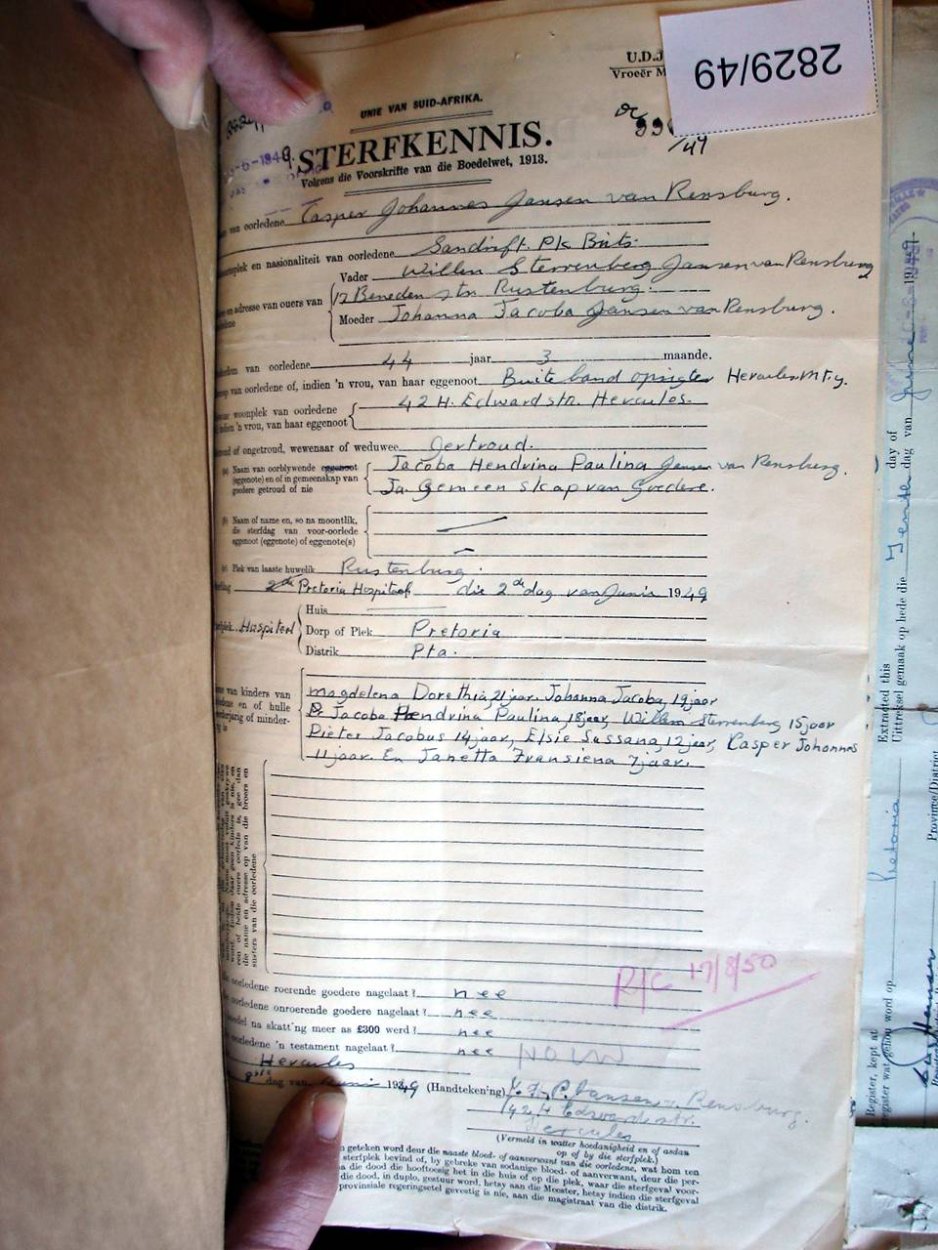 2829/49
U.D.J.
Vroeër M
UNIE VAN SUID-AFRIKA.
/49
STERFKENNIS.
Volgens die Voorskrifte van die Boedelwet, 1913.
van oorledene Casper Johannes Jansen van Rensburg.
en nasionaliteit van oorledene Sandrift. Pk Brits.
Vader Willem Sterrenberg Jansen van Rensburg
en adresse van ouers van
12 Beneden str Rustenburg.
Moeder Johanna Jacoba Jansen van Rensburg.
van oorledene 44 jaar 3 maande.
van oorledene of, indien 'n vrou, van haar eggenoot Buite band opsigter Hercules Mpy.
woonplek van oorledene
indien 'n vrou, van haar eggenoot
42 H. Edward str. Hercules.
of ongetroud, wewenaar of weduwee getroud.
(a) Naam van oorblywende eggenoot
(eggenote) en of in gemeenskap van
goedere getroud of nie
Jacoba Hendrina Paulina Jansen van Rensburg.
Ja. Gemeenskap van Goedere.
(b) Naam of name en, so na moontlik,
die sterfdag van voor-oorlede
eggenoot (eggenote) of eggenote(s)
(c) Plek van laaste huwelik Rustenburg.
Pretoria Hospitaal die 2de dag van Junie 1949
Huis
Hospitaal
Dorp of Plek Pretoria
Distrik Pta.
van kinders van
en of hulle
of minder-
Magdelena Dorethia, 21 jaar. Johanna Jacoba, 19 jaar
Jacoba Hendrina Paulina, 18 jaar, Willem Sterrenberg 15 jaar
Pieter Jacobus 14 jaar, Elsie Sussana, 12 jaar, Casper Johannes
11 jaar. En Janetta Fransiena 7 jaar.
die name en adresse op van die broers en
susters van die oorledene
R/C 17/8/50
oorledene roerende goedere nagelaat? nee
oorledene onroerende goedere nagelaat? nee
na skatt'ng meer as £300 werd? nee
oorledene 'n testament nagelaat? nee
Hercules
dag van Junie 1949 (Handteken'ng) J. H. P. Jansen v. Rensburg.
42 H Edwardstr.
Hercules
(Vermeld in watter hoedanigheid en of aedan
op of by die sterfplek.)
geteken word deur die naaste bloed- of aanverwant van die oorledene, wat hom ten
sterfplek bevind of, by gebreke van sodanige bloed- of aanverwant, deur die per-
die dood die hooftoesig het in die huis of op die plek, waar die sterfgeval voor-
die dood, in duplo, gestuur word, hetsy aan die Meester, hetsy indien die sterfgeval
provinsiale regeringsetel gevestig is nie, aan die magistraat van die distrik.
Extracted this day of
Uittreksel gemaak op hede die dag van 1949.
Pretoria
Province/District
Register, kept at
register wat gehou word op